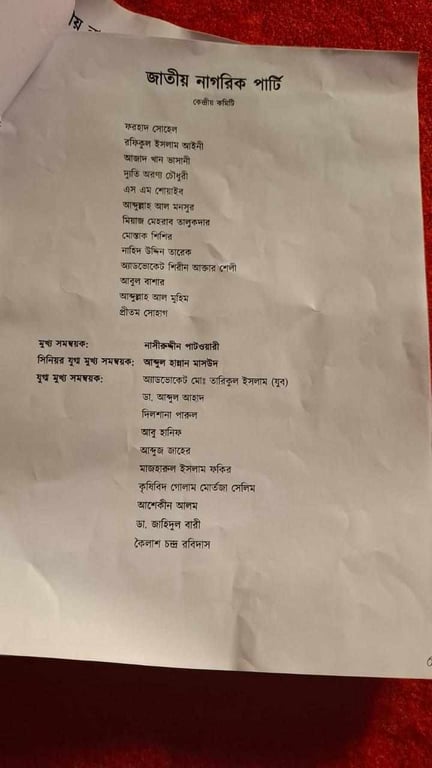 জাতীয় নাগরিক পার্টি
কেন্দ্রীয় কমিটি
ফরহাদ সোহেল
রফিকুল ইসলাম আইনী
আজাদ খান ভাসানী
দ্যুতি অরণ্য চৌধুরী
এস এম শোয়াইব
আব্দুল্লাহ আল মনসুর
মিয়াজ মেহরাব তালুকদার
মোস্তাক শিশির
নাহিদ উদ্দিন তারেক
অ্যাডভোকেট শিরীন আক্তার শেলী
আবুল বাশার
আব্দুল্লাহ আল মুহিম
প্রীতম সোহাগ
মুখ্য সমন্বয়ক: নাসীরুদ্দীন পাটওয়ারী
সিনিয়র যুগ্ম মুখ্য সমন্বয়ক: আব্দুল হান্নান মাসউদ
যুগ্ম মুখ্য সমন্বয়ক: অ্যাডভোকেট মোঃ তারিকুল ইসলাম (যুব)
ডা. আব্দুল আহাদ
দিলশানা পারুল
আবু হানিফ
আব্দুজ জাহের
মাজহারুল ইসলাম ফকির
কৃষিবিদ গোলাম মোর্তজা সেলিম
আশেকীন আলম
ডা. জাহিদুল বারী
কৈলাশ চন্দ্র রবিদাস